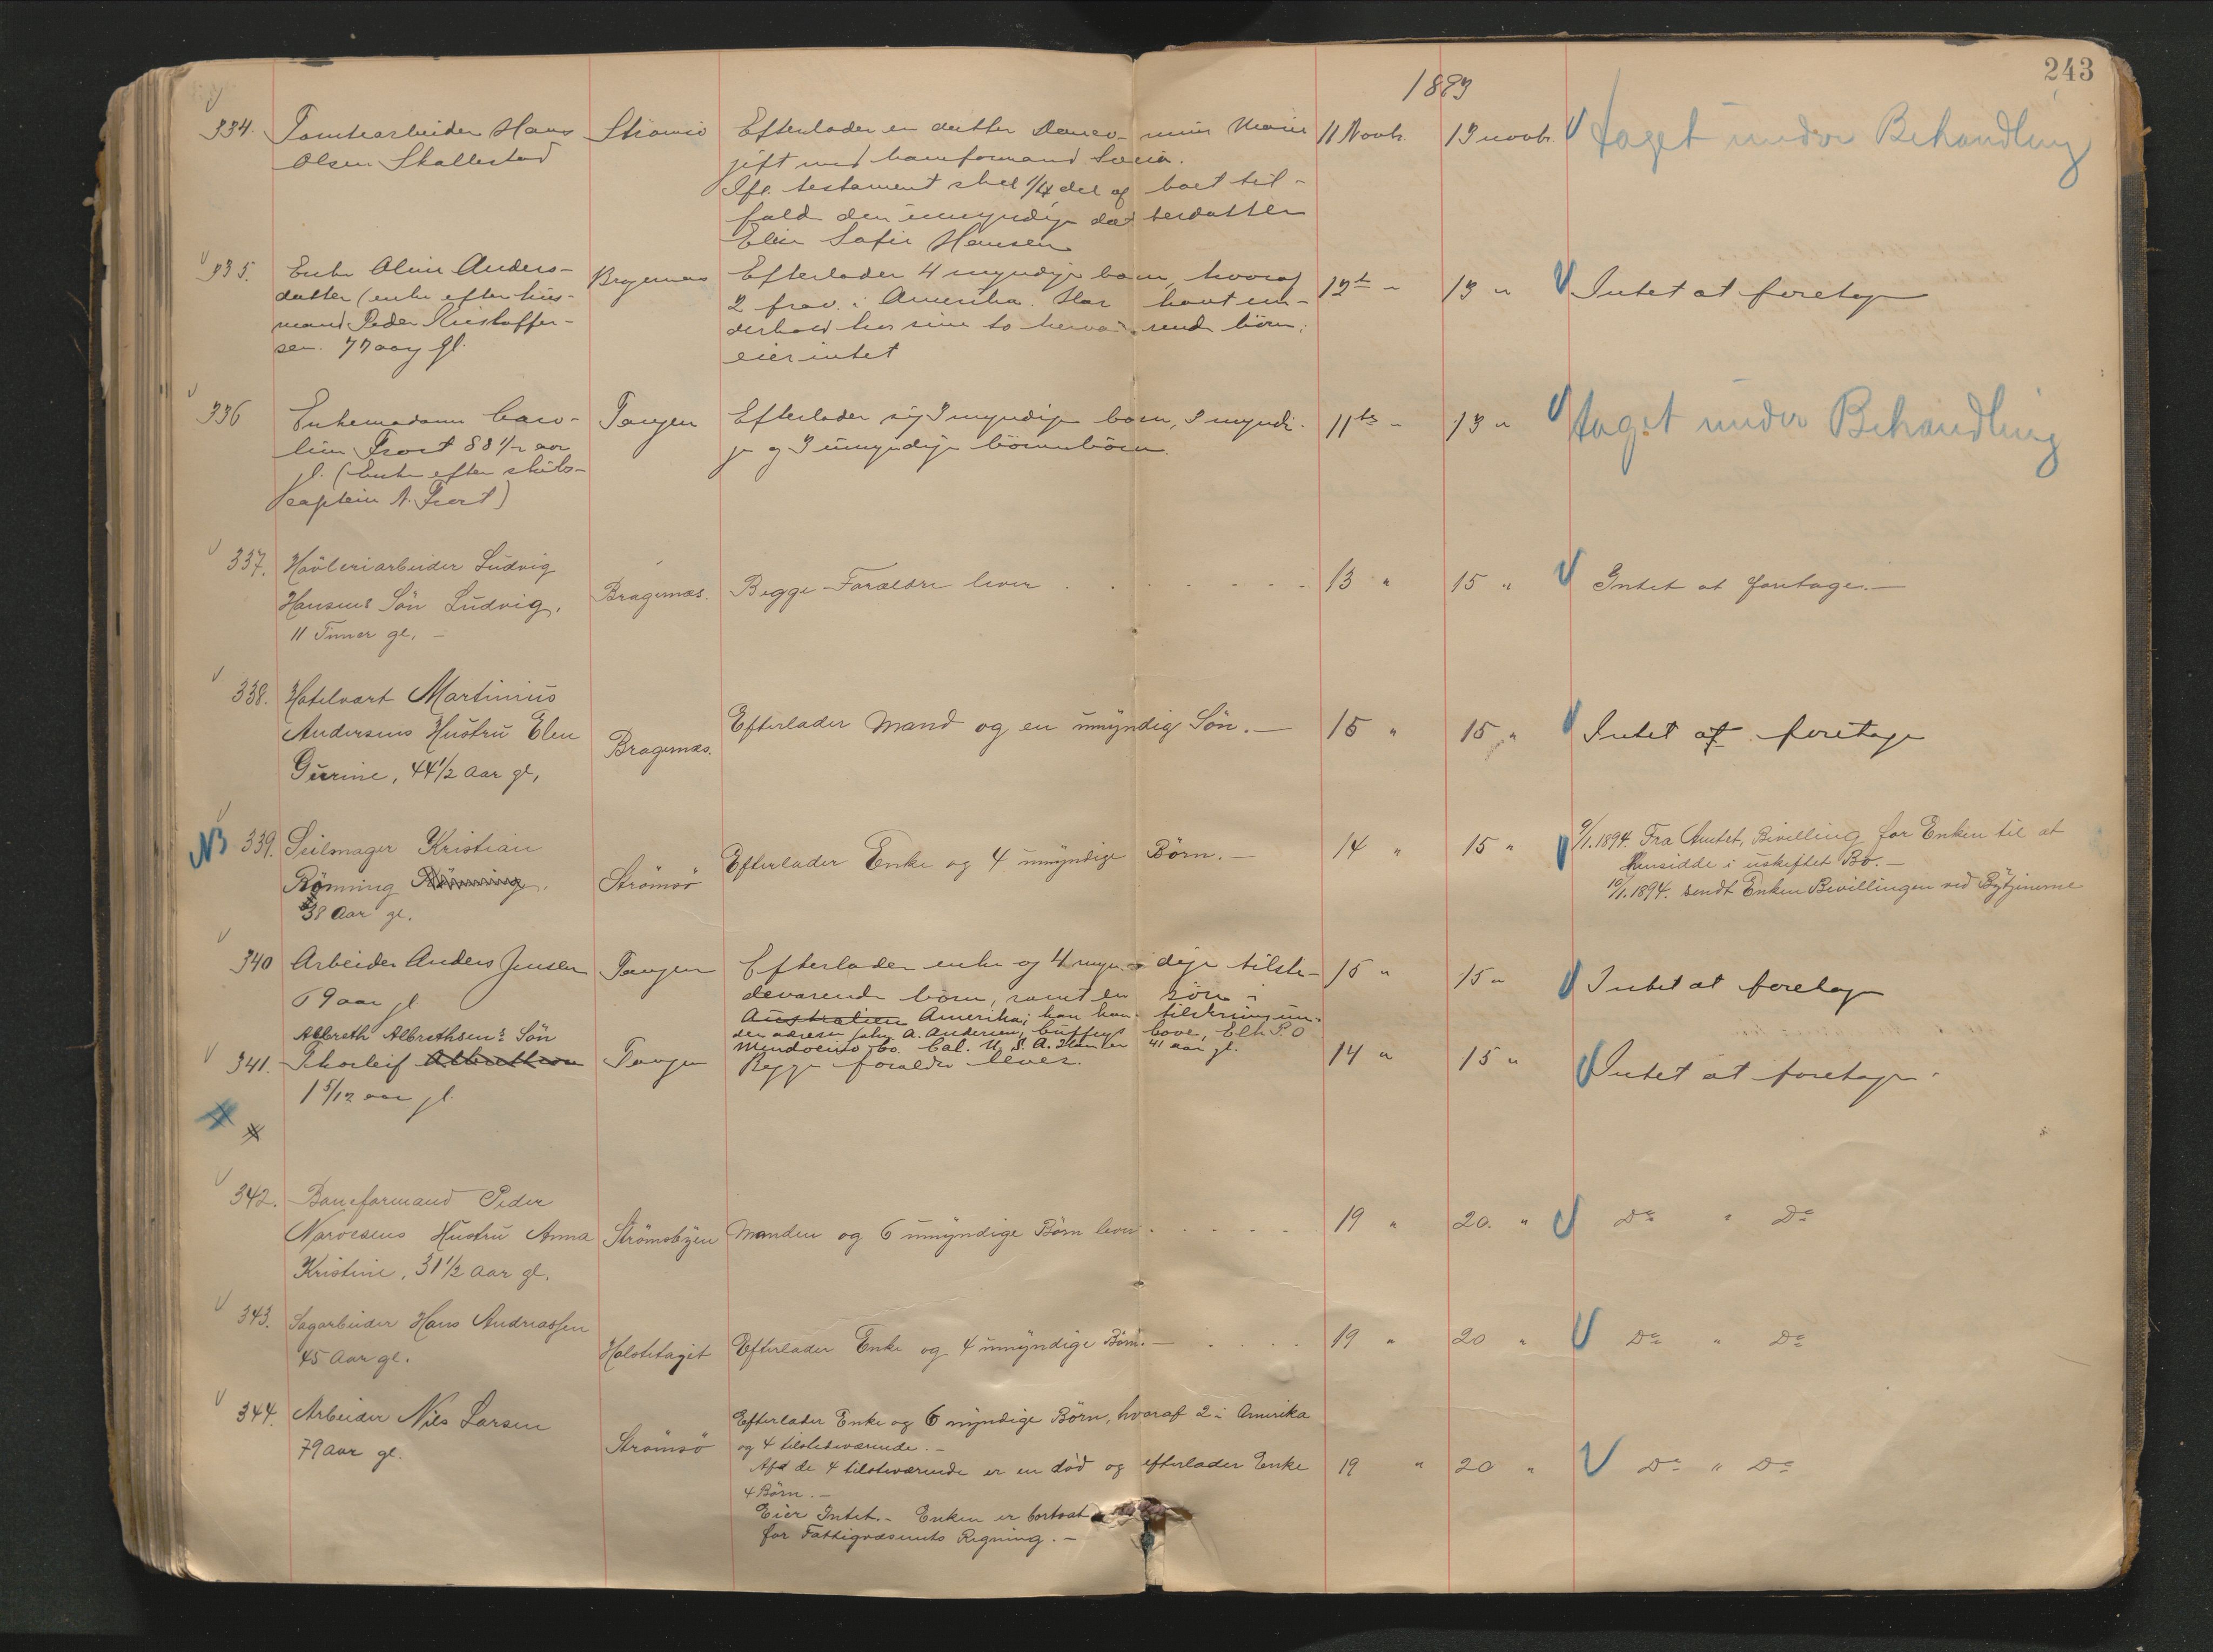 243
1893
334. Tomtearbeider Hans
Olsen Skallestad
Strömsö
Efterlader en datter
Marie
gift med baneformand
Ifl. testament skal 1/4 del af boet til-
fald den umyndige datterdatter
Sofie Hansen
11 Novb. 13 novb.
taget under Behandling
335. Enke Oline Anders-
datter (enke efter hus-
mand Peder Kristoffer-
sen. 77 aar gl.
Bragernæs
Efterlader 4 myndige børn, hvoraf
2 frav. i Amerika. Har havt un-
derhold hos sine to herværende börn;
eier intet
12te " 13 "
Intet at foretage
336 Enkemadam Caro-
line Frost 88 1/2 aar
gl. (Enke efter skibs-
captein A. Frost)
Tangen
Efterlader sig 3 myndige børn, 3 myndi-
ge og 3 umyndige börnebörn.
11te " 13 "
taget under Behandling
337. Hövleriarbeider Ludvig
Hansens Sön Ludvig,
11 Timer gl. -
Bragernæs.
Begge Forældre lever
13 " 15 "
Intet at foretage. -
338. Hotelvært Martinius
Andersens Hustru Elen
Gurine, 44 1/2 Aar gl,
Bragernæs.
Efterlader Mand og en umyndig Sön. -
15 " 15 "
Intet at foretage
NB 339. Seilmager Kristian
Rönning
38 Aar gl.
Strömsö
Efterlader Enke og 4 umyndige Börn. -
14 " 15 "
9/1. 1894. Fra Amtet, Bevilling for Enken til at
hensidde i uskiftet Bo. -
10/1. 1894. sendt Enken Bevillingen ved Bytjenerne
340 Arbeider Anders Jensen
69 aar gl
Tangen
Efterlader enke og 4 myndige tilste-
deværende börn, samt en sön i
Australien Amerika; han har tilskrivning un-
der adresse John A. Andersen, Cuffeys Cove, Elk P.O
Mendocino Co. Cal. U. S. A. Han er 41 aar gl.
15 " 15 "
Intet at foretage
Albreth Albrethsens Sön
341. Thorleif Albrethsen
1 5/12 aar gl.
Tangen
Begge forældre lever.
14 " 15 "
Intet at foretage.
342. Baneformand Peder
Narvesens Hustru Anna
Kristine, 31 1/2 Aar gl.
Strömsbyen
Manden og 6 umyndige Börn lever
19 " 20. "
Do " Do
343. Sagarbeider Hans Andreassen
45 Aar gl.
Holstetaget
Efterlader Enke og 4 umyndige Börn. -
19 " 20 "
Do " Do
344. Arbeider Nils Larsen
79 Aar gl.
Strömsö
Efterlader Enke og 6 myndige Börn, hvoraf 2 i Amerika
og 4 tilstedeværende. -
Af de 4 tilstedeværende er en död og efterlader Enke
4 Börn. -
Eier Intet. - Enken er bortsat
for Fattigvæsenets Regning. -
19 " 20 "
Do " Do